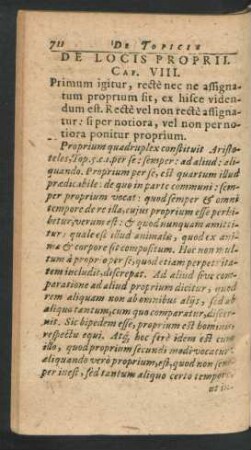 70 DE TOPICIS
DE LOCIS PROPRII.
CAP. VIII.
Primum igitur, rectè nec ne assigna-
tum proprium sit, ex hisce viden-
dum est. Rectè vel non rectè assigna-
tur: si per notiora, vel non per no-
tiora ponitur proprium.
Proprium quadruplex constituit Aristo-
teles, Top. 5. c. 1. per se: semper: ad aliud: ali-
quando. Proprium per se, est quartum illud
prædicabile: de quo in parte communi: sem-
per proprium vocat: quod semper & omni
tempore de re illa, cujus proprium esse perhi-
betur, verum est: & quod nunquam amitti-
tur: quale est illud animalis, quod ex ani-
ma & corpore sit compositum. Hoc non mul-
tum à proprio per se, quod etiam perpetuita-
tem includit, discrepat. Ad aliud sive com-
paratione ad aliud proprium dicitur, quod
rem aliquam non ab omnibus alijs, sed ab
aliquo tantum, cum quo comparatur, discer-
nit. Sic bipedem esse, proprium est hominis,
respectu equi. Atq; hoc ferè idem est cum
illo, quod proprium secundi modi vocatur.
aliquando verò proprium, est, quod non sem-
per inest, sed tantum aliquo certo tempore,
ut in-